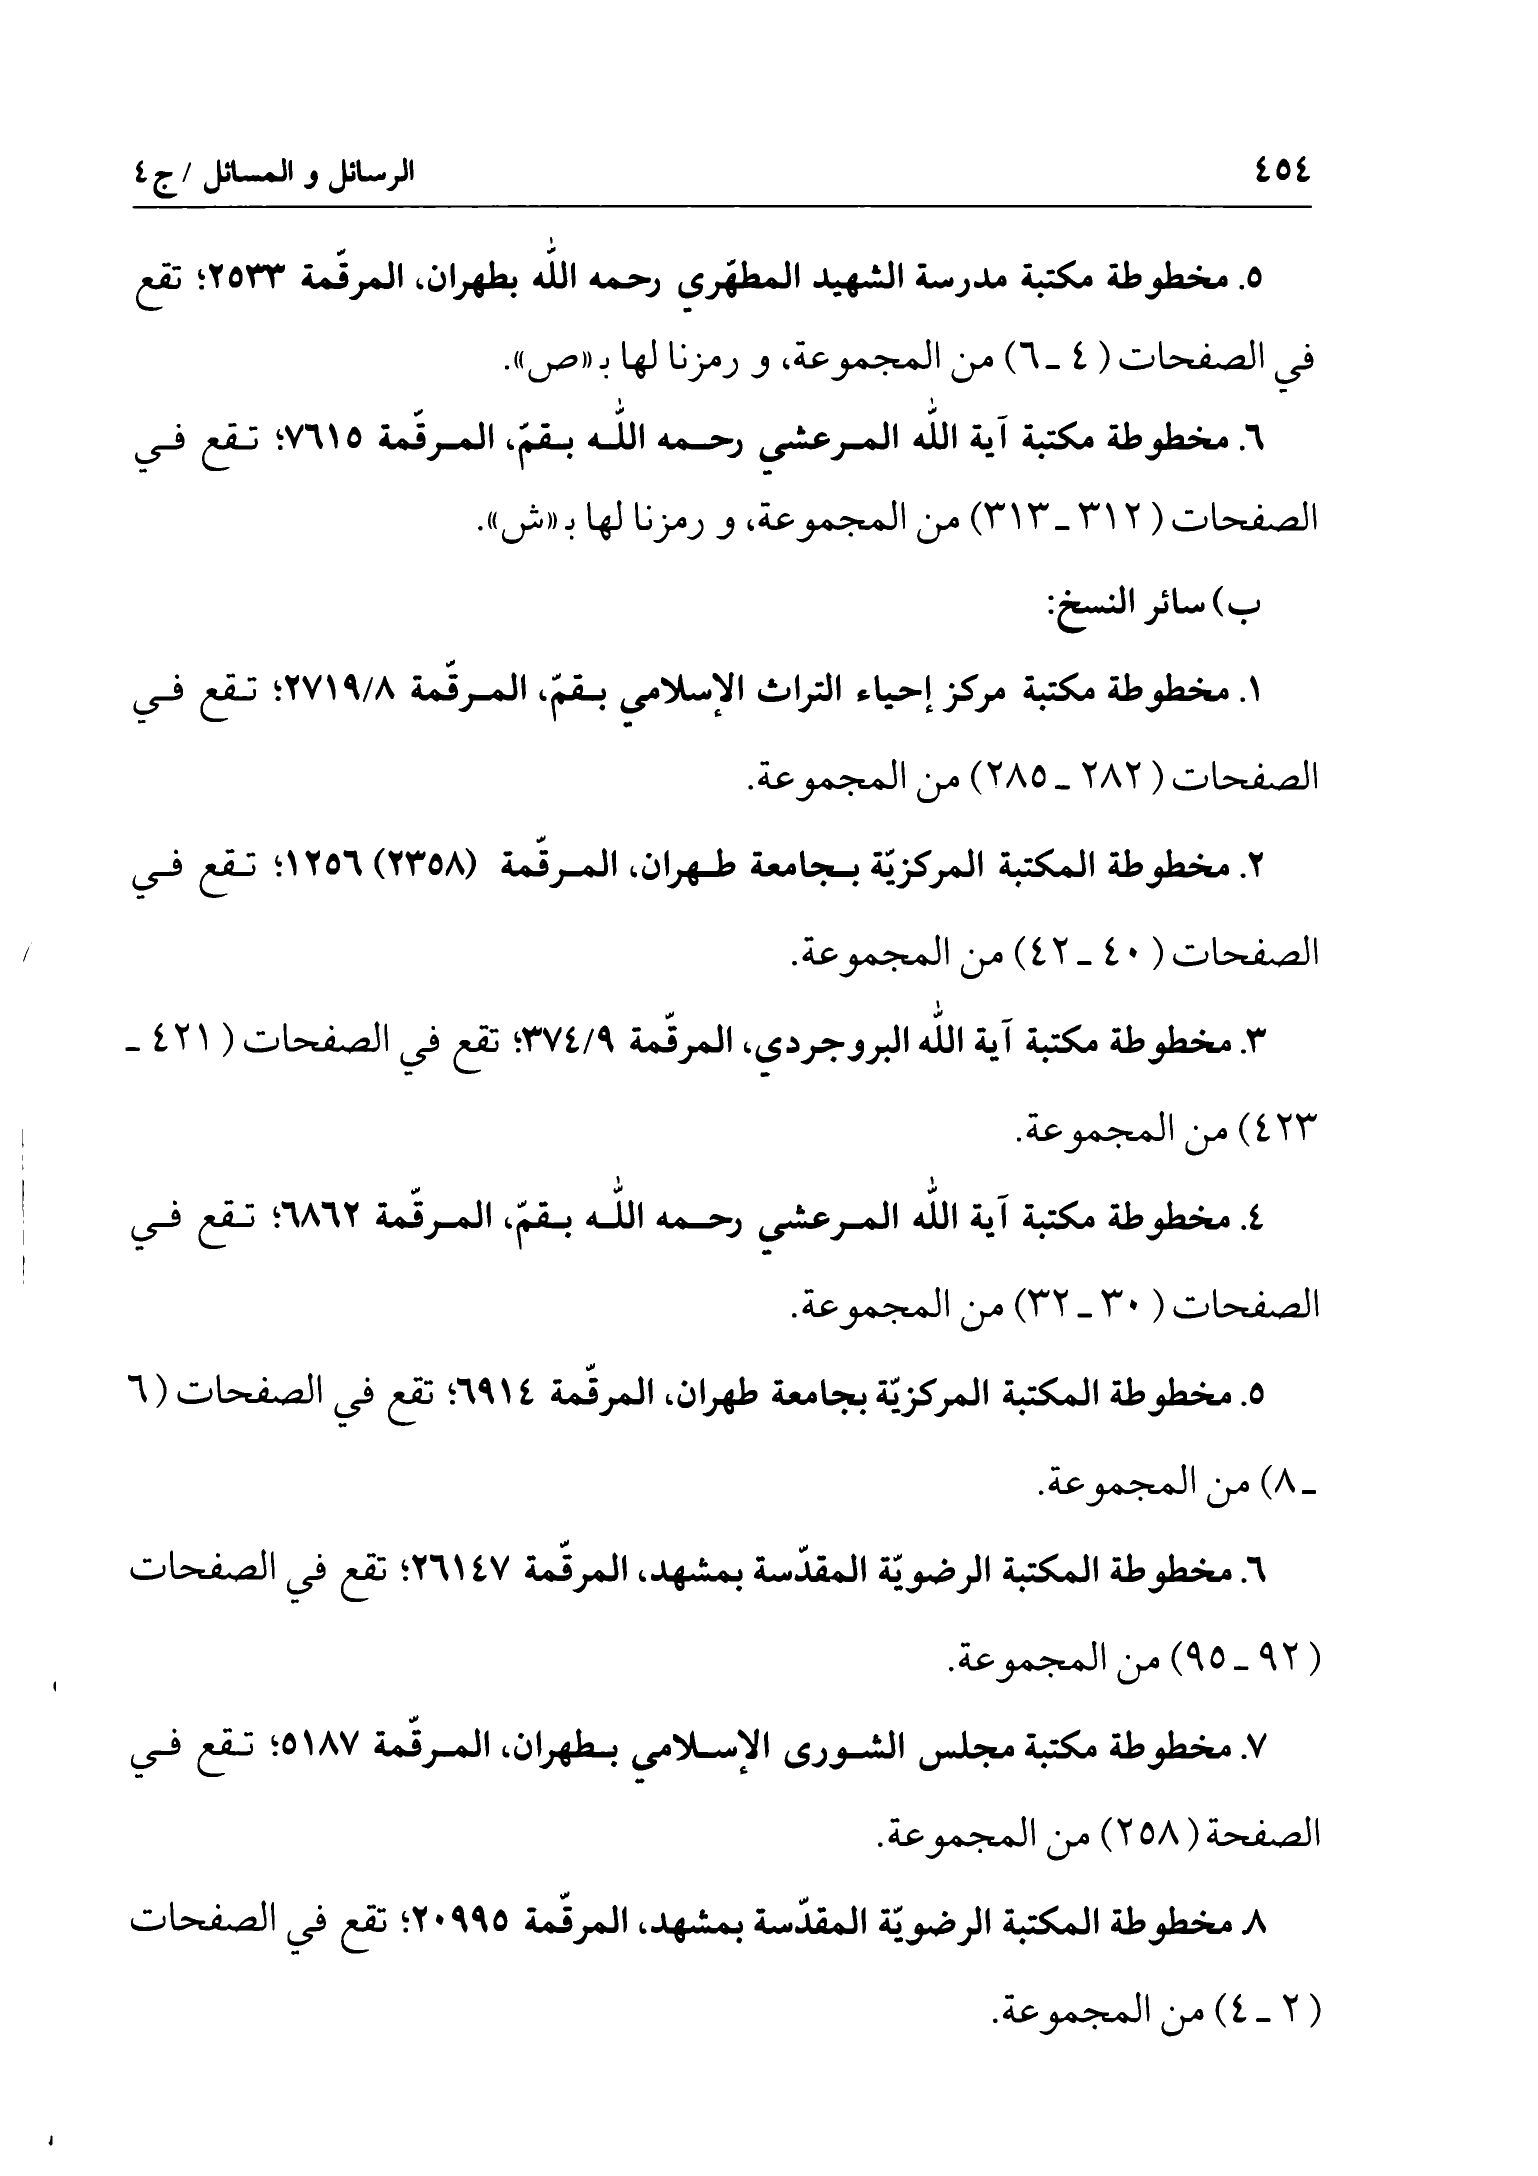 ٤٥٤ الرسائل و المسائل / ج٤
٥. مخطوطة مكتبة مدرسة الشهيد المطهّري رحمه اللّٰه بطهران، المرقّمة ٢٥٣٣؛ تقع
في الصفحات (٤ ـ ٦) من المجموعة، و رمزنا لها بـ «ص».
٦. مخطوطة مكتبة آية اللّٰه المـرعشي رحـمه اللّٰـه بـقمّ، المـرقّمة ٧٦١٥؛ تـقع فـي
الصفحات (٣١٢ ـ ٣١٣) من المجموعة، و رمزنا لها بـ «ش».
ب) سائر النسخ:
١. مخطوطة مكتبة مركز إحياء التراث الإسلامي بـقمّ، المـرقّمة ٢٧١٩/٨؛ تـقع فـي
الصفحات (٢٨٢ ـ ٢٨٥) من المجموعة.
٢. مخطوطة المكتبة المركزيّة بـجامعة طـهران، المـرقّمة (٢٣٥٨) ١٢٥٦؛ تـقع فـي
الصفحات (٤٠ ـ ٤٢) من المجموعة.
٣. مخطوطة مكتبة آية اللّٰه البروجردي، المرقّمة ٣٧٤/٩؛ تقع في الصفحات (٤٢١ ـ
٤٢٣) من المجموعة.
٤. مخطوطة مكتبة آية اللّٰه المـرعشي رحـمه اللّٰـه بـقمّ، المـرقّمة ٦٨٦٢؛ تـقع فـي
الصفحات (٣٠ ـ ٣٢) من المجموعة.
٥. مخطوطة المكتبة المركزيّة بجامعة طهران، المرقّمة ٦٩١٤؛ تقع في الصفحات (٦
ـ ٨) من المجموعة.
٦. مخطوطة المكتبة الرضويّة المقدّسة بمشهد، المرقّمة ٢٦١٤٧؛ تقع في الصفحات
(٩٢ ـ ٩٥) من المجموعة.
٧. مخطوطة مكتبة مجلس الشـورى الإسـلامي بـطهران، المـرقّمة ٥١٨٧؛ تـقع فـي
الصفحة (٢٥٨) من المجموعة.
٨. مخطوطة المكتبة الرضويّة المقدّسة بمشهد، المرقّمة ٢٠٩٩٥؛ تقع في الصفحات
(٢ ـ ٤) من المجموعة.